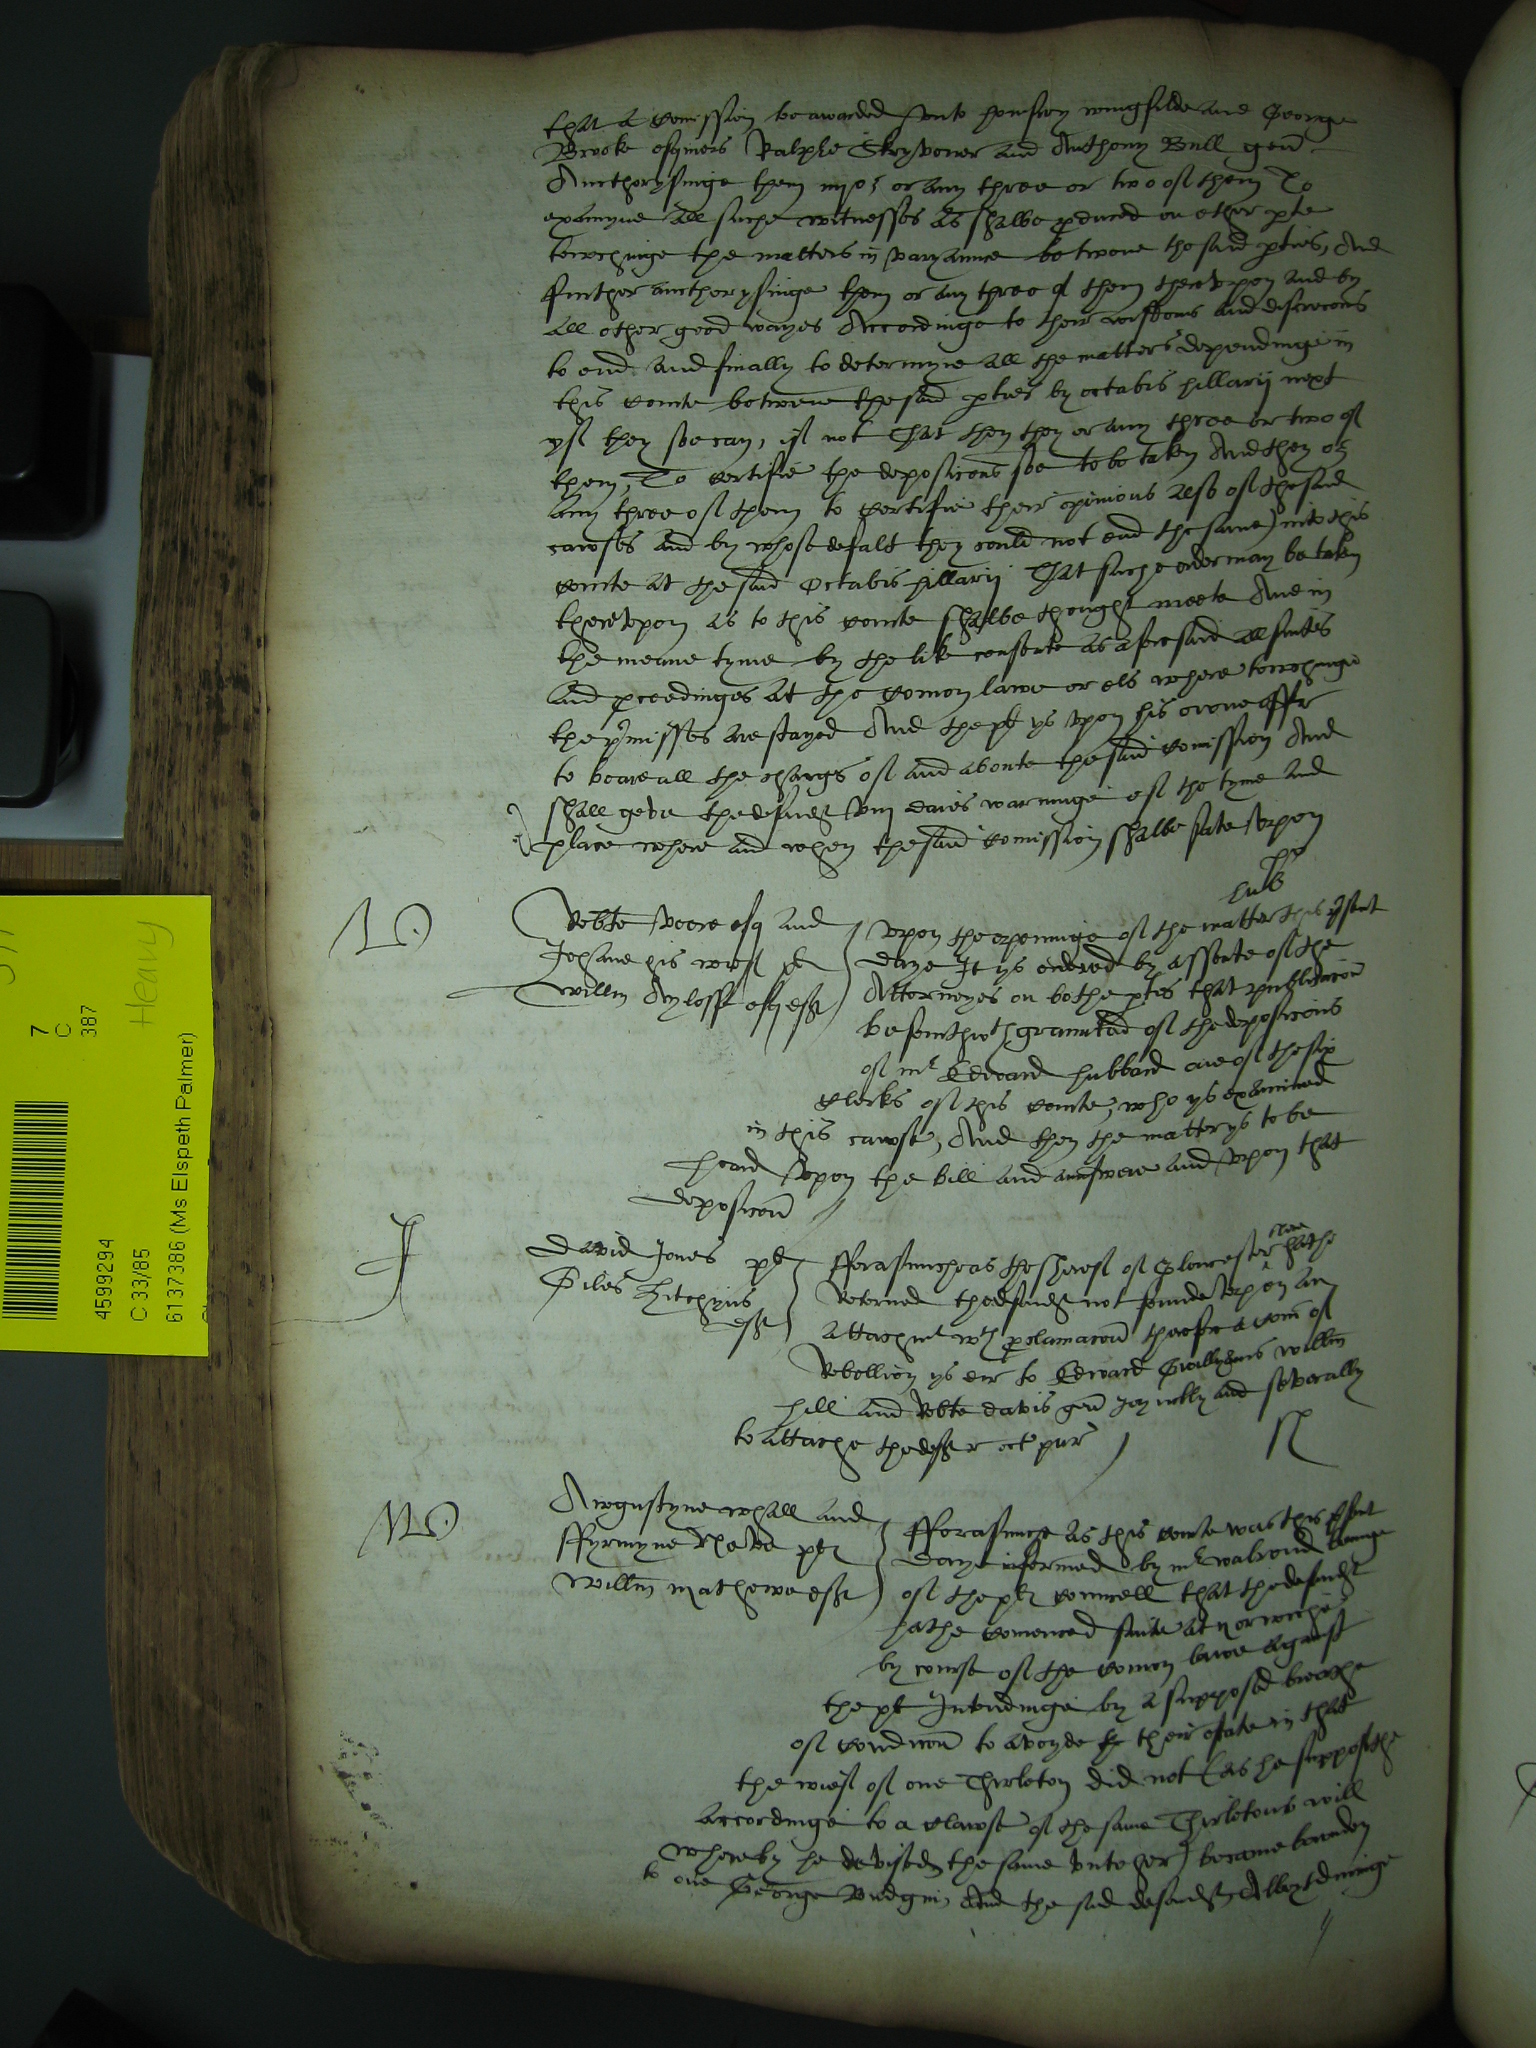 that a Comission be awarded unto Humfrey wingfilde and George
Brooke esquiers Ralphe Skryvener and Anthony Bull gent
Aucthorysinge them iiij or any three or two of them To
examyne all suche witnesses as shalbe produced on ether pte
towchinge the matters in varyaunce betwene the said pties, And
further aucthorysinge them or any three of them therupon and by
all other good wayes Accordinge to their wisdoms and discrecons
to end and finally to determyne all the matters dependinge in
this Courte betwene the said pties by octabis hillarij next
yf they soe can, if not That then they or any three or two of
them, To certifie the deposicons soe to be taken And they or
any three of them to certifie their opinions also of the said
cawses and by whose defalt they could not end the same) into this
Courte at the said octabis hillarij That suche order may be taken
therupon as to this Courte shalbe thought meete And in
the meane tyme by the like consente as aforesaid all suites
and pceedinges at the Comon lawe or els where towchinge
the pmisses are stayed And the pl ys upon his owne offr
to beare all the charges of and aboute the said Comission And
shall geve the defendt daies warninge of the tyme and
place where and when the said Comission shalbe sate upon
L
Robte esq and
Johane his wief pl
Willm Ayloffe esq deft
Upon the openinge of the matter this psent
daye It ys ordered by assente of the
Attorneyes on bothe pties that publicacon
be forthwth graunted of the deposicons
of mr Edward Hubbard one of the six
Clerks of this Courte, who ys examined
in this cawse, And then the matter ys to be
heard upon the bill and aunswere and upon that
deposicon
David Jones pl
Giles
deft
fforasmuche as the Shereff of Gloucester hathe
Retorned the defendt not founde upon an
attachmt wth pclamacon therfore a Com of
Rebellion ys to Edward Willm
hill and Robte davis gent Joyntly and severally
to attache the deft r oct pur
M
Awgustyne whall and
ffyrmyne pl
Willm Mathewe deft
fforasmuch as this Courte was this psent
daye informed by mr walrond beinge
of the pl councell that the defendt
hathe Comenced suite at norwiche
by course of the Comon lawe against
the pl Intendinge by a supposed breache
of Condicon to avoyde their estate in that
the wief of one Thirleton did not (as he supposethe
accordinge to a Clawse of the same Thirletons will
whereby he devised the same unto her) become bownden
to one George And the said defendt
4599294
C 33/85
6137386 (Ms Elspeth Palmer)
7
C
387
Heavy